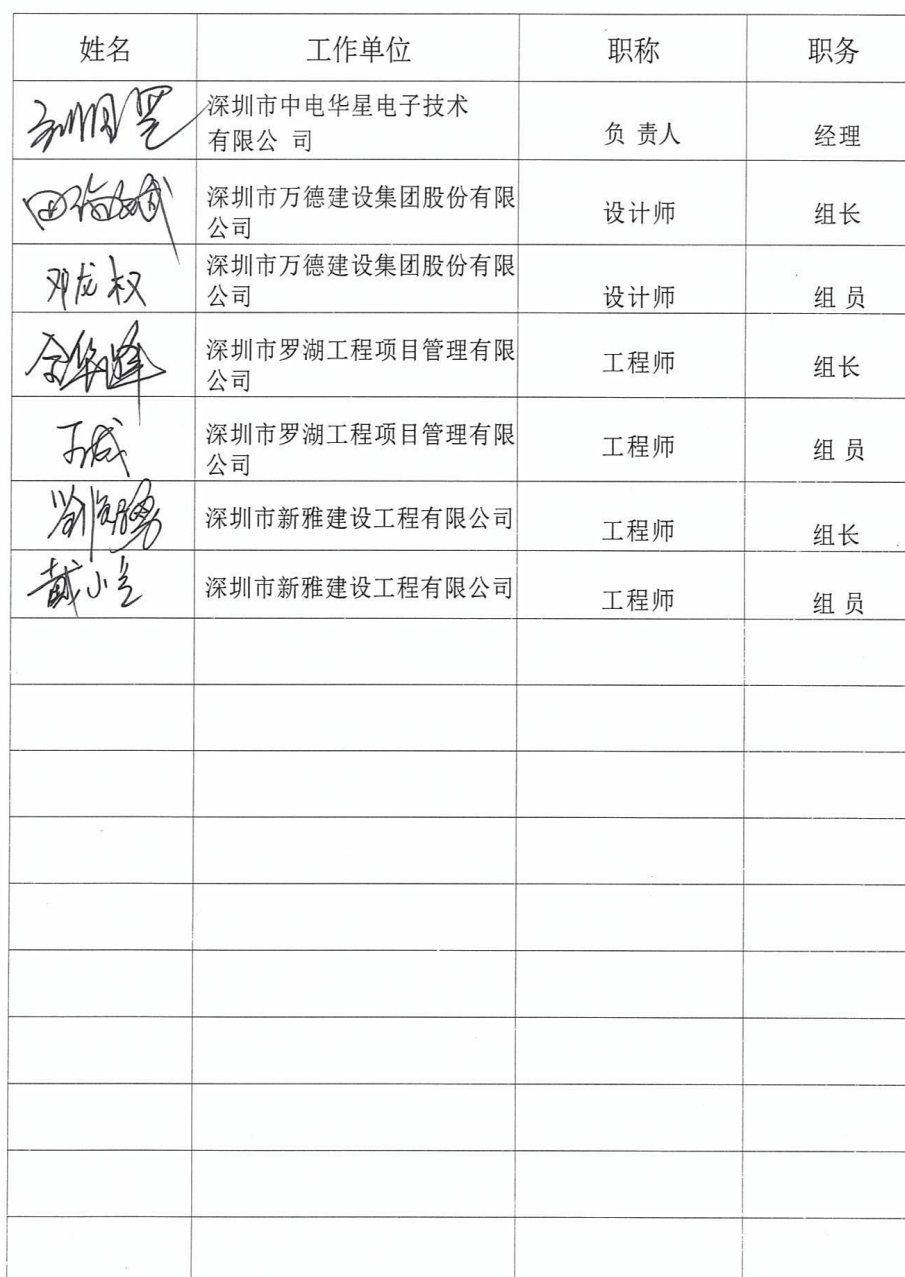 姓名 工作单位 职称 职务
深圳市中电华星电子技术
有限公 司 负 责人 经理
深圳市万德建设集团股份有限
公司 设计师 组长
邓龙权 深圳市万德建设集团股份有限
公司 设计师 组 员
深圳市罗湖工程项目管理有限
公司 工程师 组长
深圳市罗湖工程项目管理有限
公司 工程师 组 员
深圳市新雅建设工程有限公司 工程师 组长
戴小 深圳市新雅建设工程有限公司 工程师 组 员